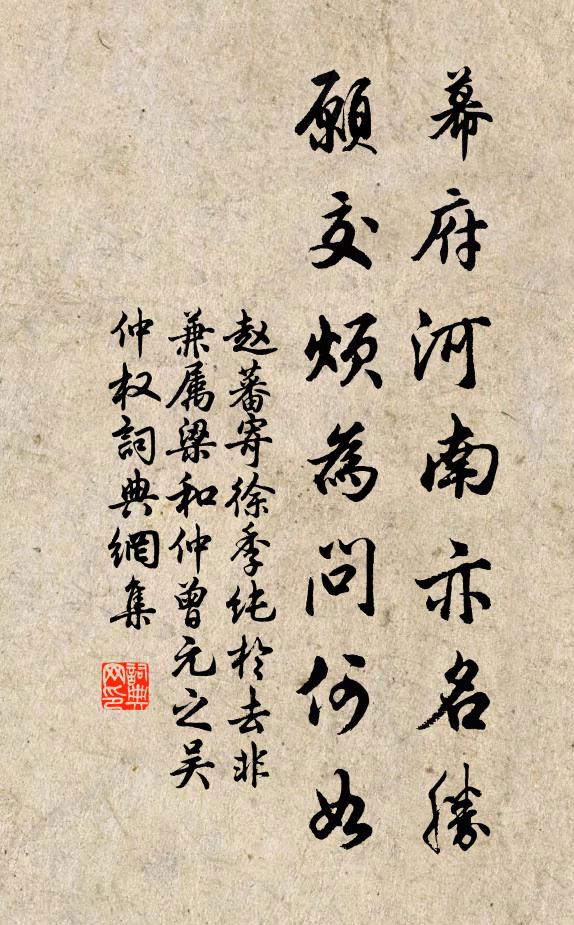 幕府河南亦名勝
願交煩為問何如
赵蕃寄徐季纯於去非
兼属梁和仲曾元之吴
仲权詞典網集
詞典网印